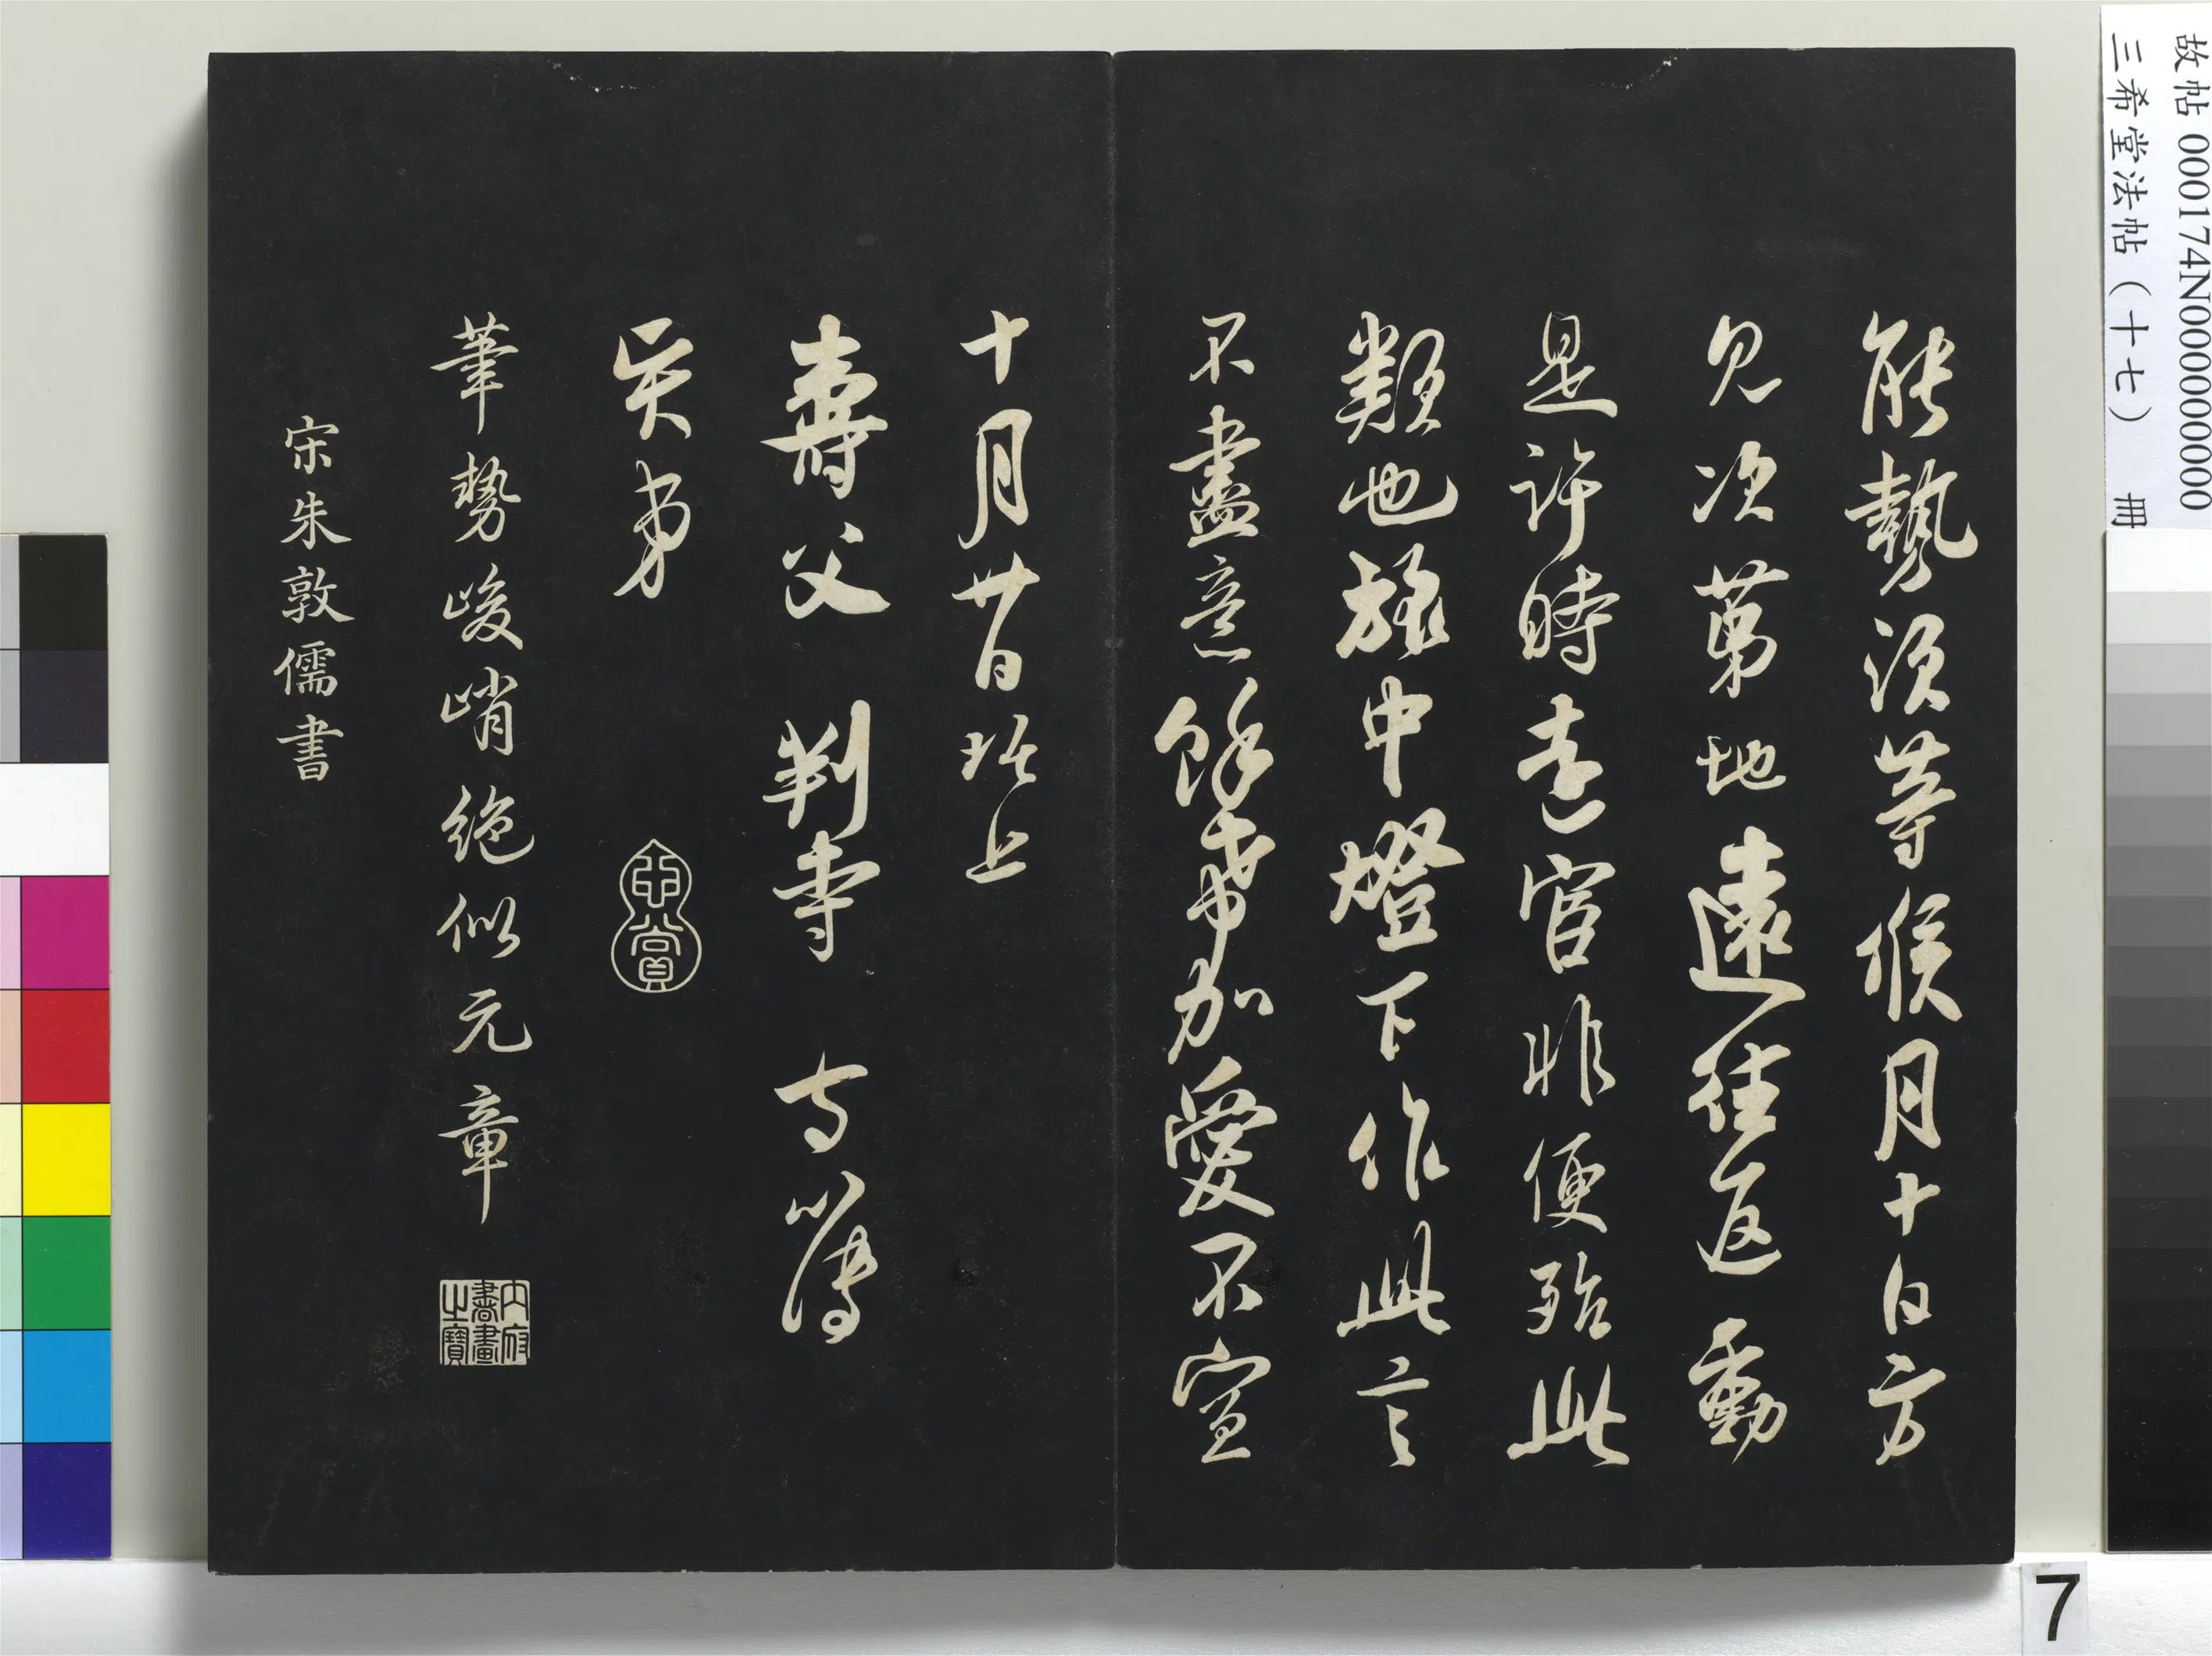 故帖 000174N000000000
三希堂法帖（十七） 冊
能勢須等候月十日方
見次第地遠往返動
是許時遠官非便殆此
類也旅中燈下作此言
不盡意餘希加愛不宣
十月廿日琚上
壽父 判寺 寺簿
賢弟
筆勢峻峭絕似元章
內府書畫之寶
宋朱敦儒書
7